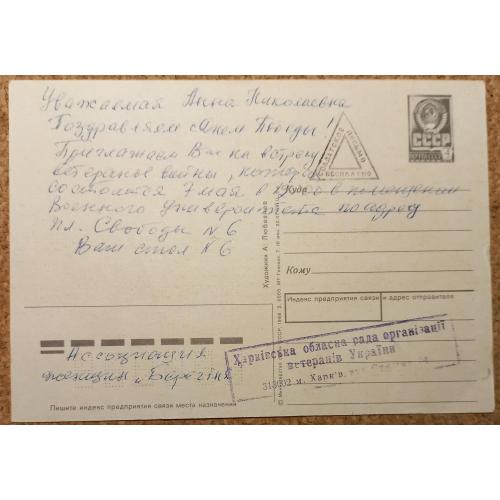 Уважаемая Анна Николаевна
Поздравляем с Днем Победы!
Приглашаем Вас на встречу
ветеранов войны, которая
состоится 7 мая в в помещении
Военного Университета по адресу
пл. Свободы № 6
Ваш стол № 6
Ассоциация
женщин "Берегиня
СОЛДАТСКОЕ
ПИСЬМО
БЕСПЛАТНО
СССР
Куда
Кому
Индекс предприятия связи и адрес отправителя
Харківська обласна рада організації
ветеранів України
313002 м. Харків,
Пишите индекс предприятия связи места назначения
Художник А. Любезнов